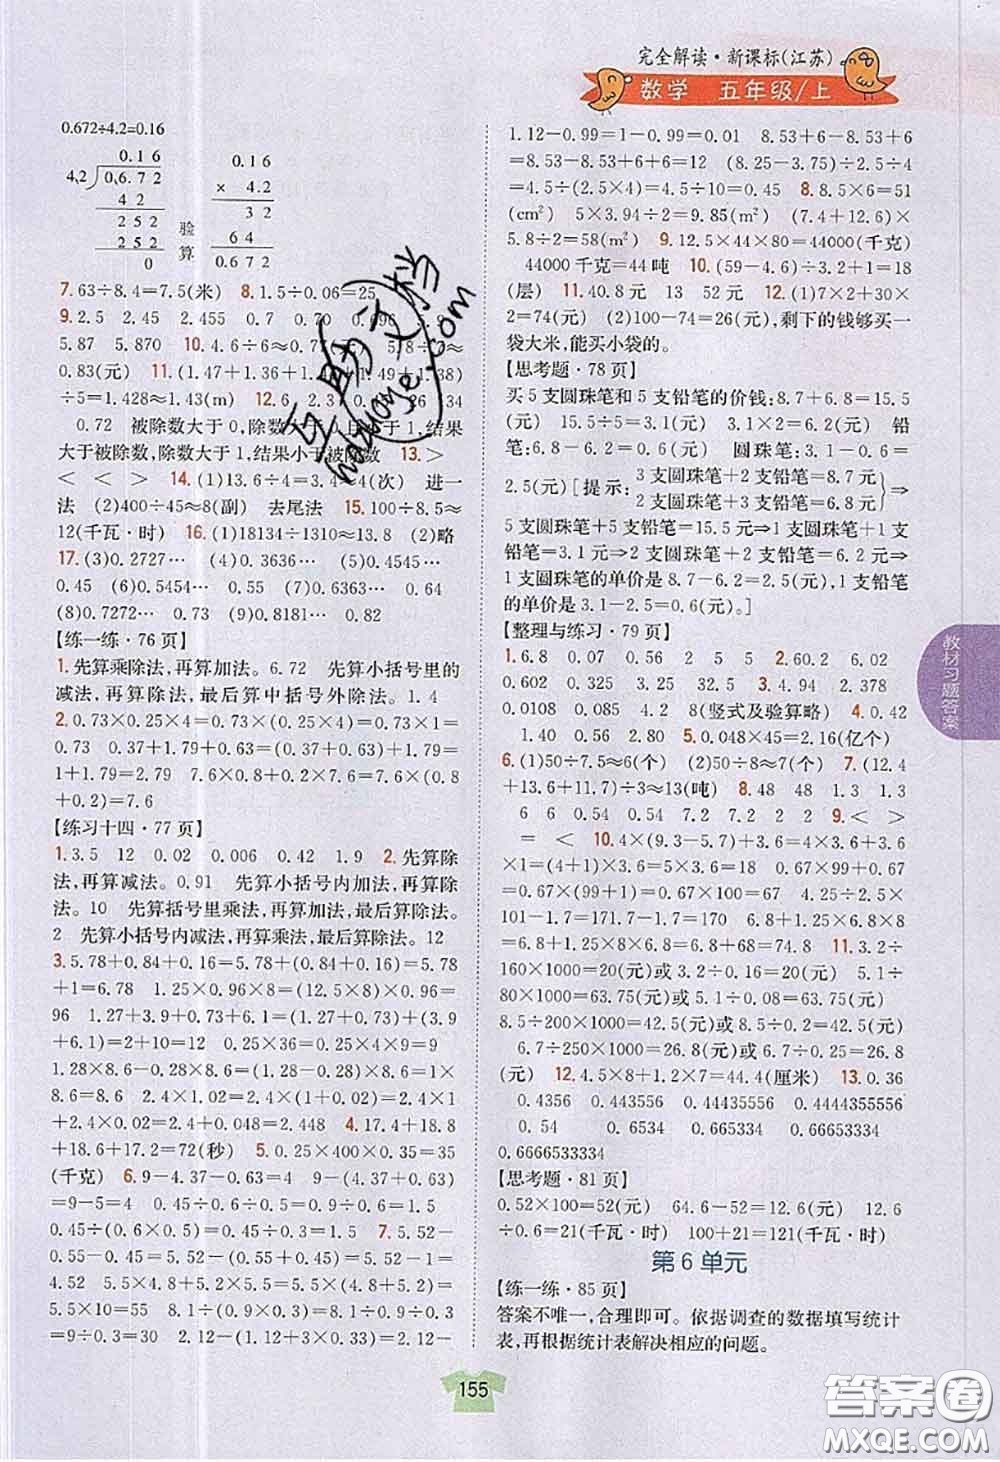 完全解读·新课标(江苏)
数学 五年级/上
0.672÷4.2=0.16
0.16
4.2 0.6.7 2
4 2
2 5 2
2 5 2
0
验
算
0.16
× 4.2
3 2
6 4
0.6 7 2
7.63÷8.4=7.5(米) 8.1.5÷0.06=25
9.2.5 2.45 2.455 0.7 0.70
5.87 5.870 10.4.6÷6≈0.77
0.83(元) 11.(1.47+1.36+1.49+1.38)
÷5=1.428≈1.43(m) 12.6 2.3
0.72 被除数大于0,除数大于0且小于1,结果
大于被除数,除数大于1,结果小于被除数 13.>
< < > 14.(1)13.6÷4=3.4≈4(次) 进一
法 (2)400÷45≈8(副) 去尾法 15.100÷8.5≈
12(千瓦·时) 16.(1)18134÷1310≈13.8 (2)略
17.(3)0.2727… (4)0.3636… (5)0.4545…
0.45 (6)0.5454… 0.55 (7)0.6363… 0.64
(8)0.7272… (9)0.8181… 0.82
【练一练·76页】
1.先算乘除法,再算加法。6.72 先算小括号里的
减法,再算除法,最后算中括号外除法。1.4
2.0.73×0.25×4=0.73×(0.25×4)=0.73×1=
0.73 0.37+0.4×4.79+1.79=0.4×4.79=
1+1.79=2.79 7.6×0.8+0.2×7.6=7.6×(0.8
+0.2)=7.6
【练习十四·77页】
1.3.5 12 0.02 0.006 0.42 1.9 2.先算除
法,再算减法。0.91 先算小括号内加法,再算除
法。10 先算括号里乘法,再算加法,最后算除法。
2 先算小括号内减法,再算乘法,最后算除法。12
3.5.78+0.84+0.16=5.78+(0.84+0.16)=5.78
+1=6.78 1.25×0.96×8=(12.5×8)×0.96=
96 1.27+3.9+0.73+6.1=(1.27+0.73)+(3.9
+6.1)=2+10=12 0.25×36=0.25×4×9=9
1.28×8.6-0.28×8.6=(1.28-0.28)×8.6=1×
8.6=8.6 2.4×1.02=2.4×(1+0.02)=2.4×1
+2.4×0.02=2.4+0.048=2.448 4.17.4+18.8
+18.6+17.2=72(秒) 5.0.25×400×0.45=45
(千克) 6.9-4.37-0.63=9-(4.37+0.63)
=9-5=4 0.45÷0.5+0.6=0.9+0.6=1.5
0.45÷(0.6×0.5)=0.45÷0.3=1.5 7.5.52-
0.55÷0.55=5.52-1=4.52 5.5×8.2+1.8×
5.5=5.5×(8.2+1.8)=5.5×10=55
5.5×10=55 8.1÷(0.3×0.9)=8.1÷0.9÷0.3
=9÷0.3=30 2.12-(1.12+3×0.33)=2.12-
1.12-0.99=1-0.99=0.01 8.53+6-8.53+6
=8.53-8.53+6+6=12 (8.25-3.75)÷2.5÷4
=4.5÷(2.5×4)=4.5÷10=0.45 8.8.5×6=51
(cm²) 5×3.94÷2=9.85(m²) (7.4+12.6)×
5.8÷2=58(m²) 9.12.5×44×80=44000(千克)
44000千克=44吨 10.(59-4.6)÷3.2+1=18
(层) 11.40.8元 13 52元 12.(1)7×2+30×
2=74(元) (2)100-74=26(元),剩下的钱够买一
袋大米,能买小袋的。
【思考题·78页】
买5支圆珠笔和5支铅笔的价钱:8.7+6.8=15.5
(元) 15.5÷5=3.1(元) 3.1×2=6.2(元) 铅
笔:6.8-6.2=0.6(元) 圆珠笔:3.1-0.6=
2.5(元)[提示:
3支圆珠笔+2支铅笔=8.7元
2支圆珠笔+3支铅笔=6.8元 ⇒
5支圆珠笔+5支铅笔=15.5元⇒1支圆珠笔+1支
铅笔=3.1元⇒2支圆珠笔+2支铅笔=6.2元⇒
1支圆珠笔的单价是8.7-6.2=2.5(元),1支铅笔
的单价是3.1-2.5=0.6(元)。]
【整理与练习·79页】
1.6.8 0.07 0.56 2 5 5 2.60.2 6.02
0.602 0.325 3.25 32.5 3.4.94 2.4
0.0108 0.085 4.2 8(竖式及验算略) 4.0.42
1.40 0.56 2.80 5.0.048×45=2.16(亿个)
6.(1)50÷7.5≈6(个) (2)50÷8≈7(个) 7.(12.4+
13.6+11.7)÷3≈13(吨) 8.48 48 1.3 3
6 6 0.54 0.54 7.2 7.2 2 2 9.< >
= < 10.4×(9.3-5.7)÷4=3.6 4×3.6+
3.6=(4+1)×3.6=5×3.6=18 0.67×99+0.67=
0.67×(99+1)=0.67×100=67 1.7×101-
1.7=171.7-1.7=170 6.8+1.25×6.8×8
=6.8+1.25×8×6.8=6.8+68=74.8 11.3.2÷
160×1000=20(元)或3.2÷0.16=20(元) 5.1÷
80×1000=63.75(元)或5.1÷0.08=63.75(元)
8.5÷200×1000=42.5(元)或8.5÷0.2=42.5(元)
6.7÷250×1000=26.8(元)或6.7÷0.25=26.8
(元) 12.4.5×8+1.2×7=44.4(厘米) 13.0.36
0.4356 0.443556 0.44435556 0.4444355556
0.54 0.6534 0.665334 0.66653334
0.6666533334
【思考题·81页】
0.52×100=52(元) 64.6-52=12.6(元) 12.6
÷0.6=21(千瓦·时) 100+21=121(千瓦·时)
第6单元
【练一练·85页】
答案不唯一,合理即可。依据调查的数据填写统计
表,再根据统计表解决相应的问题。
教材习题答案
155
答案圈
MXQE.COM